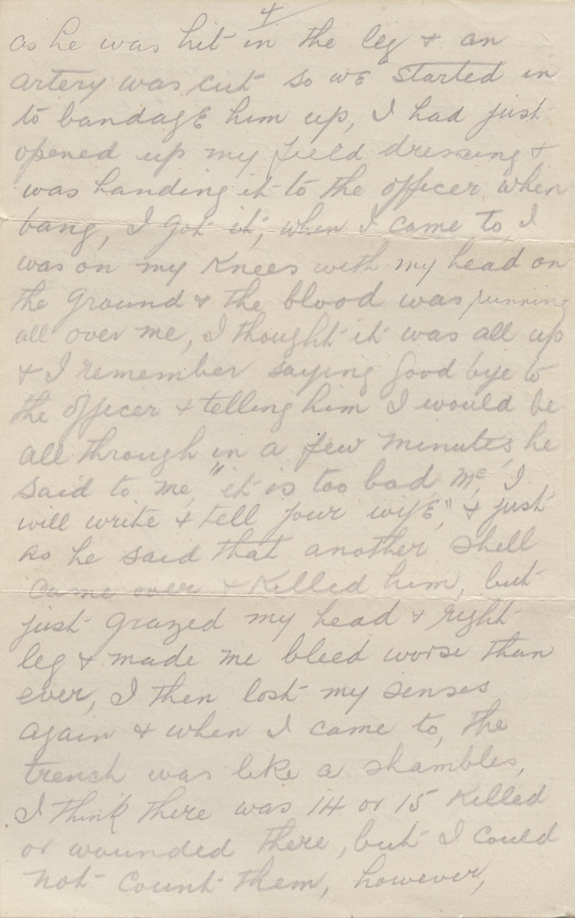 4
as he was hit in the leg & an
artery was cut so we started in
to bandage him up, I had just
opened up my field dressing &
was handing it to the officer when
bang, I got it, when I came to, I
was on my Knees with my head on
the ground & the blood was running
all over me, I thought it was all up
& I remember saying good bye to
the officer & telling him I would be
all through in a few minutes, he
said to me, "it is too bad Mc, I
will write & tell your wife," & just
as he said that another shell
came over & Killed him, but
just grazed my head & right
leg & made me bleed worse than
ever, I then lost my senses
again & when I came to, the
trench was like a shambles,
I think there was 14 or 15 Killed
or wounded there, but I could
not count them, however,